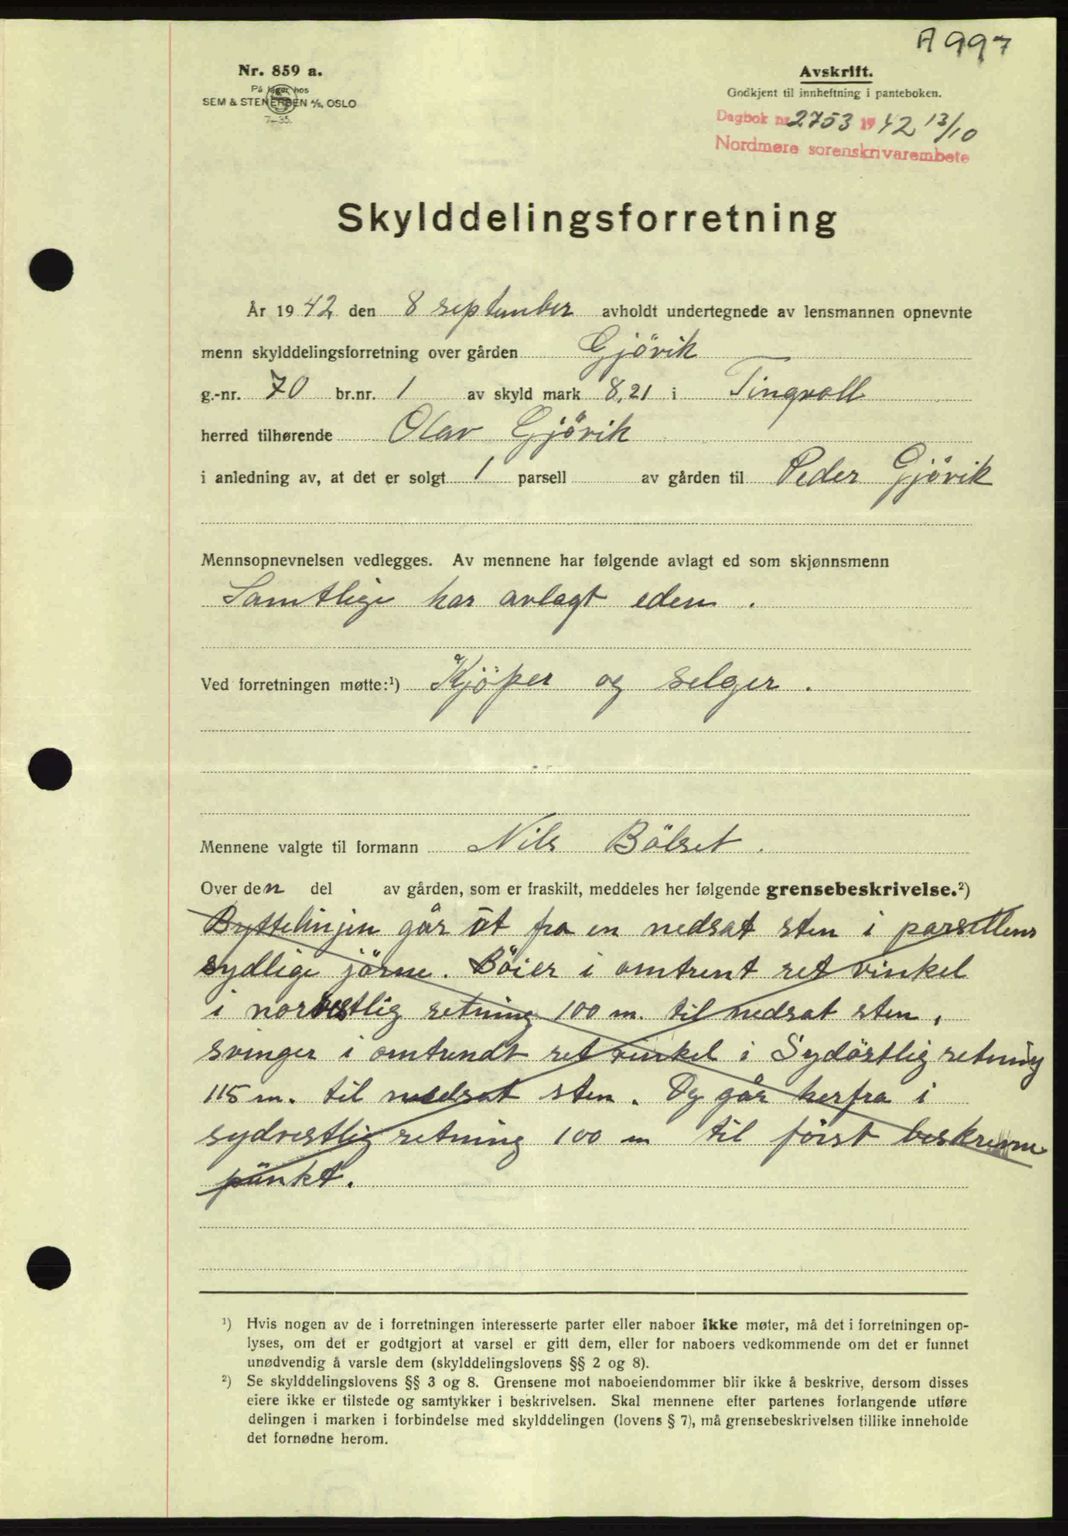 A 997
Nr. 859 a.
På lager hos
SEM & STENERSEN A/S, OSLO
7-35.
Avskrift.
Godkjent til innheftning i panteboken.
Dagbok nr. 2753 1942 13/10
Nordmøre sorenskrivarembete
Skylddelingsforretning
År 1942 den 8 september avholdt undertegnede av lensmannen opnevnte
menn skylddelingsforretning over gården Gjövik
g.-nr. 70 br.nr. 1 av skyld mark 8,21 i Tingvoll
herred tilhørende Olav Gjövik
i anledning av, at det er solgt 1 parsell av gården til Peder Gjövik
Mennsopnevnelsen vedlegges. Av mennene har følgende avlagt ed som skjønnsmenn
Samtlige har avlagt eden.
Ved forretningen møtte:¹) Kjöper og selger.
Mennene valgte til formann Nils Bölset.
Over den del av gården, som er fraskilt, meddeles her følgende grensebeskrivelse.²)
Byttelinjen går út fra en nedsat sten i parsellens
sydlige jörne. Böier i omtrent ret vinkel
i norvestlig retning 100 m. til nedsat sten,
svinger i omtrendt ret vinkel i Sydöstlig retning
115 m. til nedsat sten. Og går herfra i
sydvestlig retning 100 m til först beskrevne
pünkt.
¹) Hvis nogen av de i forretningen interesserte parter eller naboer ikke møter, må det i forretningen op-
lyses, om det er godtgjort at varsel er gitt dem, eller for naboers vedkommende om det er funnet
unødvendig å varsle dem (skylddelingslovens §§ 2 og 8).
²) Se skylddelingslovens §§ 3 og 8. Grensene mot naboeiendommer blir ikke å beskrive, dersom disses
eiere ikke er tilstede og samtykker i beskrivelsen. Skal mennene efter partenes forlangende utføre
delingen i marken i forbindelse med skylddelingen (lovens § 7), må grensebeskrivelsen tillike inneholde
det fornødne herom.